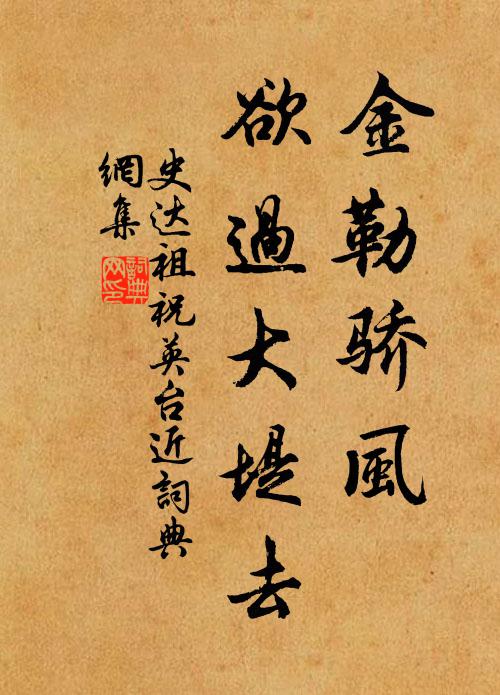 金勒骄風
欲過大堤去
史达祖祝英台近詞典
網集
詞典
网印